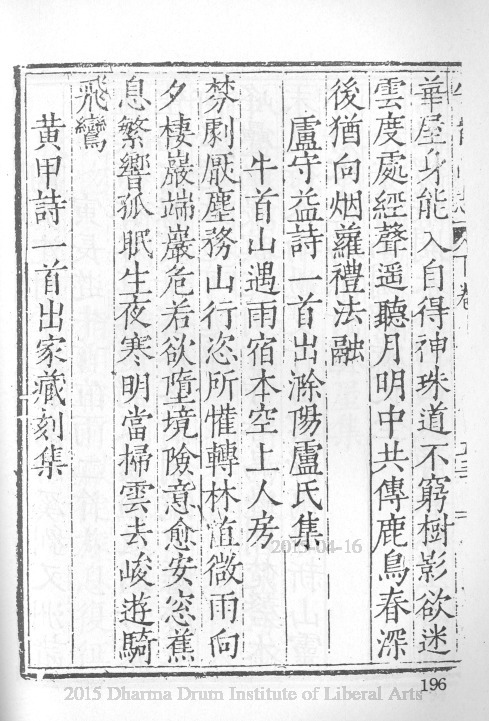 華屋身能入自得神珠道不窮樹影欲迷
雲度處經聲遥聽月明中共傳鹿鳥春深
後猶向烟蘿禮法融
盧守益詩一首出滁陽盧氏集
牛首山遇雨宿本空上人房
棼劇厭塵務山行恣所懽轉林值微雨向
夕棲巖端巖危若欲墮境險意愈安窓蕉
息繁響孤眠生夜寒明當掃雲去峻遊騎
飛鸞
黄甲詩一首出家藏刻集
2015-04-16
196
2015 Dharma Drum Institute of Liberal Arts